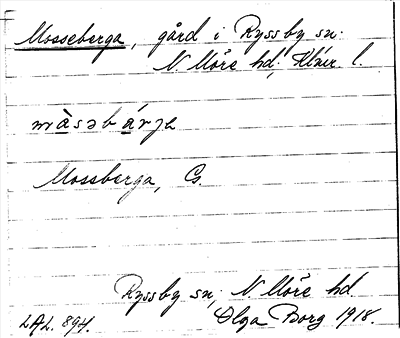 Mosseberga, gård i Ryssby sn.
N. Möre hd, Klmr. l.
màsəbárja
Mosseberga, G.
Ryssby sn, N. Möre hd.
LAL. 894. Olga Borg 1918.